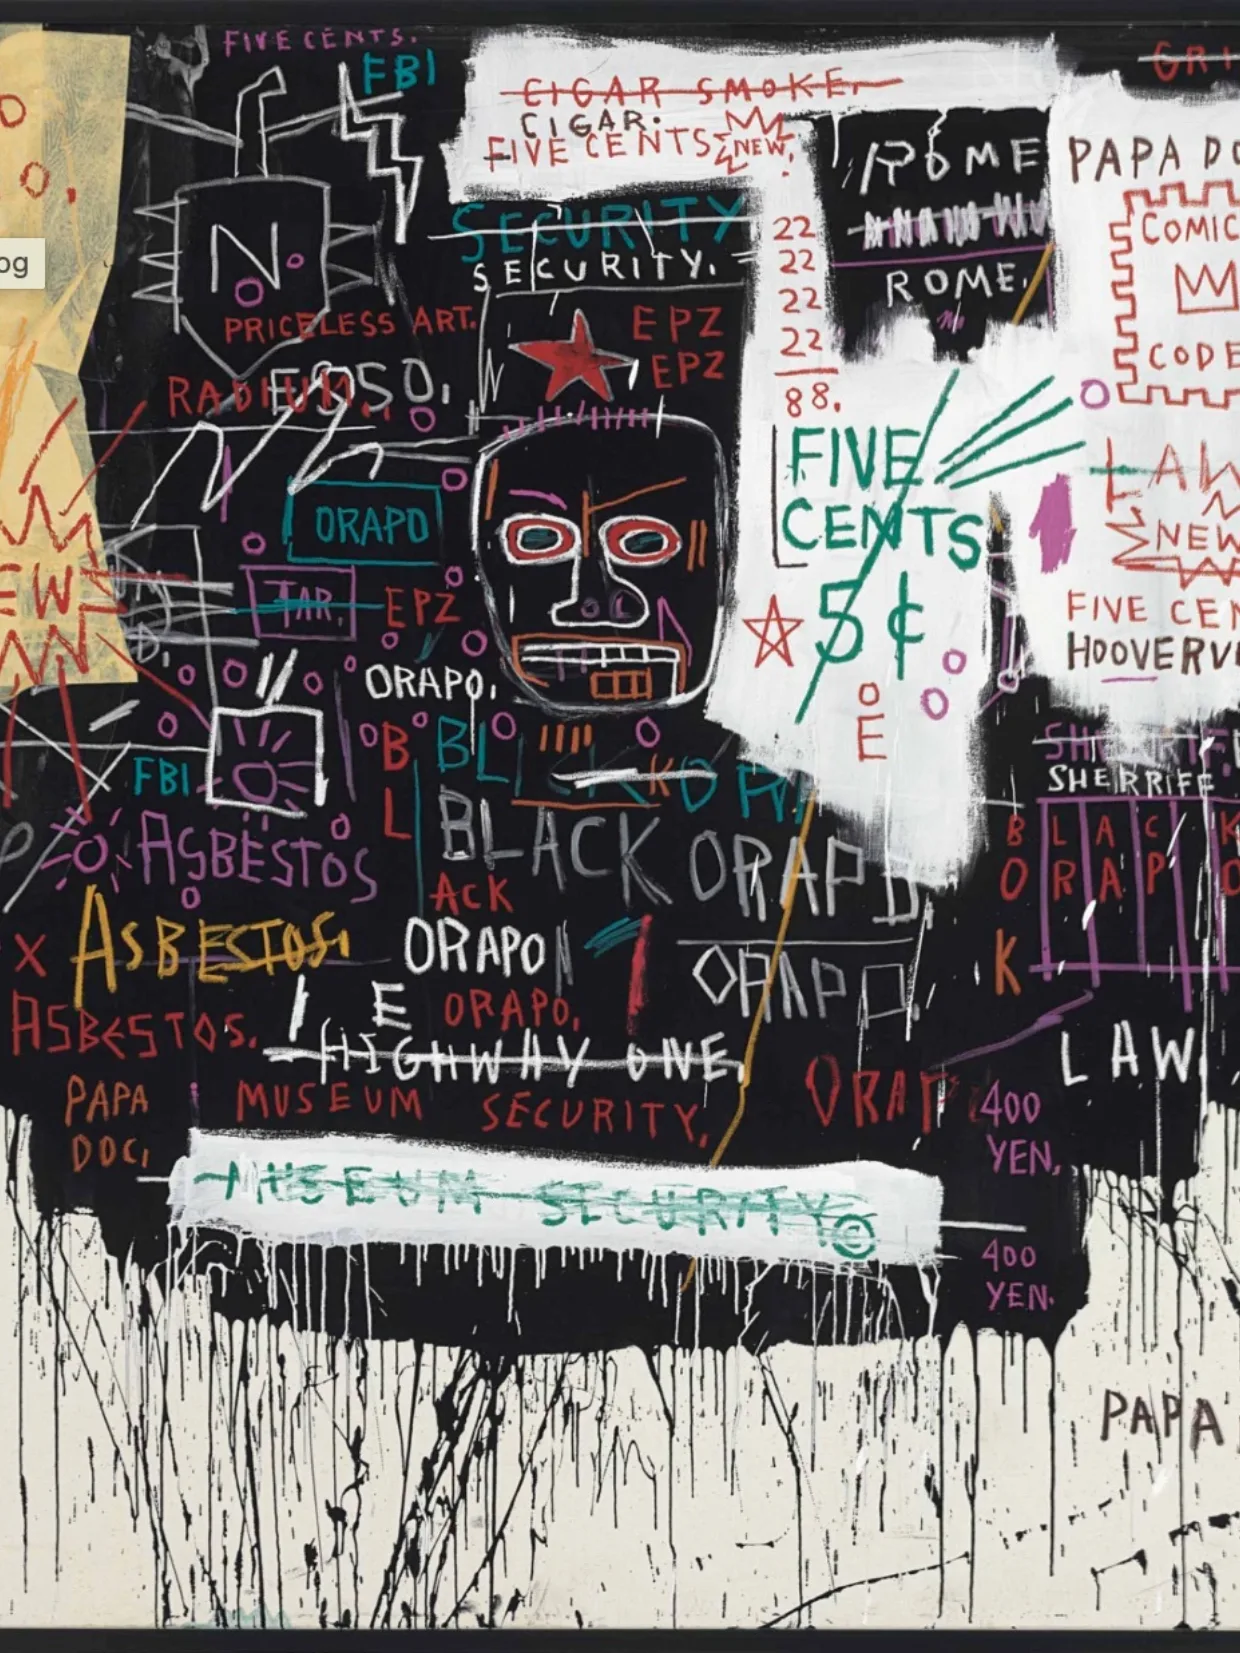 FIVE CENTS.
FBI
CIGAR SMOKE.
CIGAR.
FIVE CENTS
NEW.
ROME
ROME.
PAPA DO
COMIC
CODE
O
O.
og
N.
SECURITY
SECURITY.
22
22
22
22
88.
PRICELESS ART.
EPZ
EPZ
RADIUM.
ESSO.
ORAPO
TAR.
EPZ
ORAPO.
FIVE
CENTS
5¢
E
LAW
NEW
FIVE CEN
HOOVERV
EW
D.
FBI
B
L
ACK
BL
BLACK ORAP
ORAP
ASBESTOS
ASBESTOS.
X
ASBESTOS.
ORAPO
E
ORAPO.
HIGHWAY ONE.
MUSEUM SECURITY.
PAPA
DOC.
MUSEUM SECURITY©
ORAP
400
YEN.
400
YEN.
SHERRIFF
BLACK
ORAPO
K
LAW
PAPA